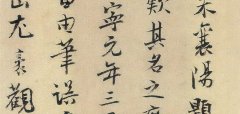 米襄陽題
欵其名之
寧元年三
由筆誤
山尤袤觀